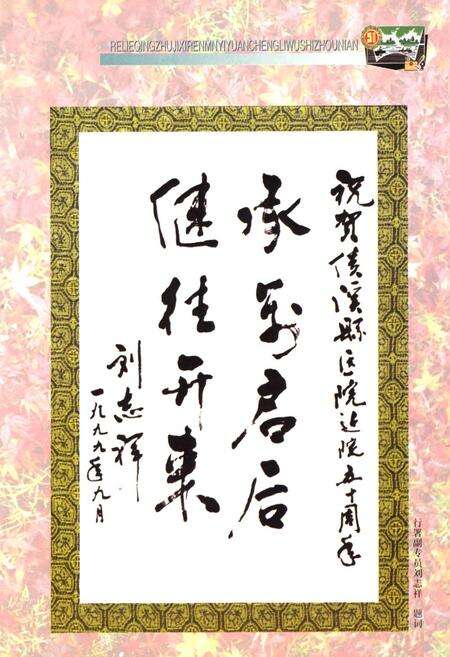 RELIEQINGZHUJIXIRENMNYIYUANCHENGLIWUSHIZHOUNIAN
祝贺绩溪縣医院边院五十周年
承前启后
继往开来
刘志祥
一九九九年九月
行署副专员刘志祥 题词